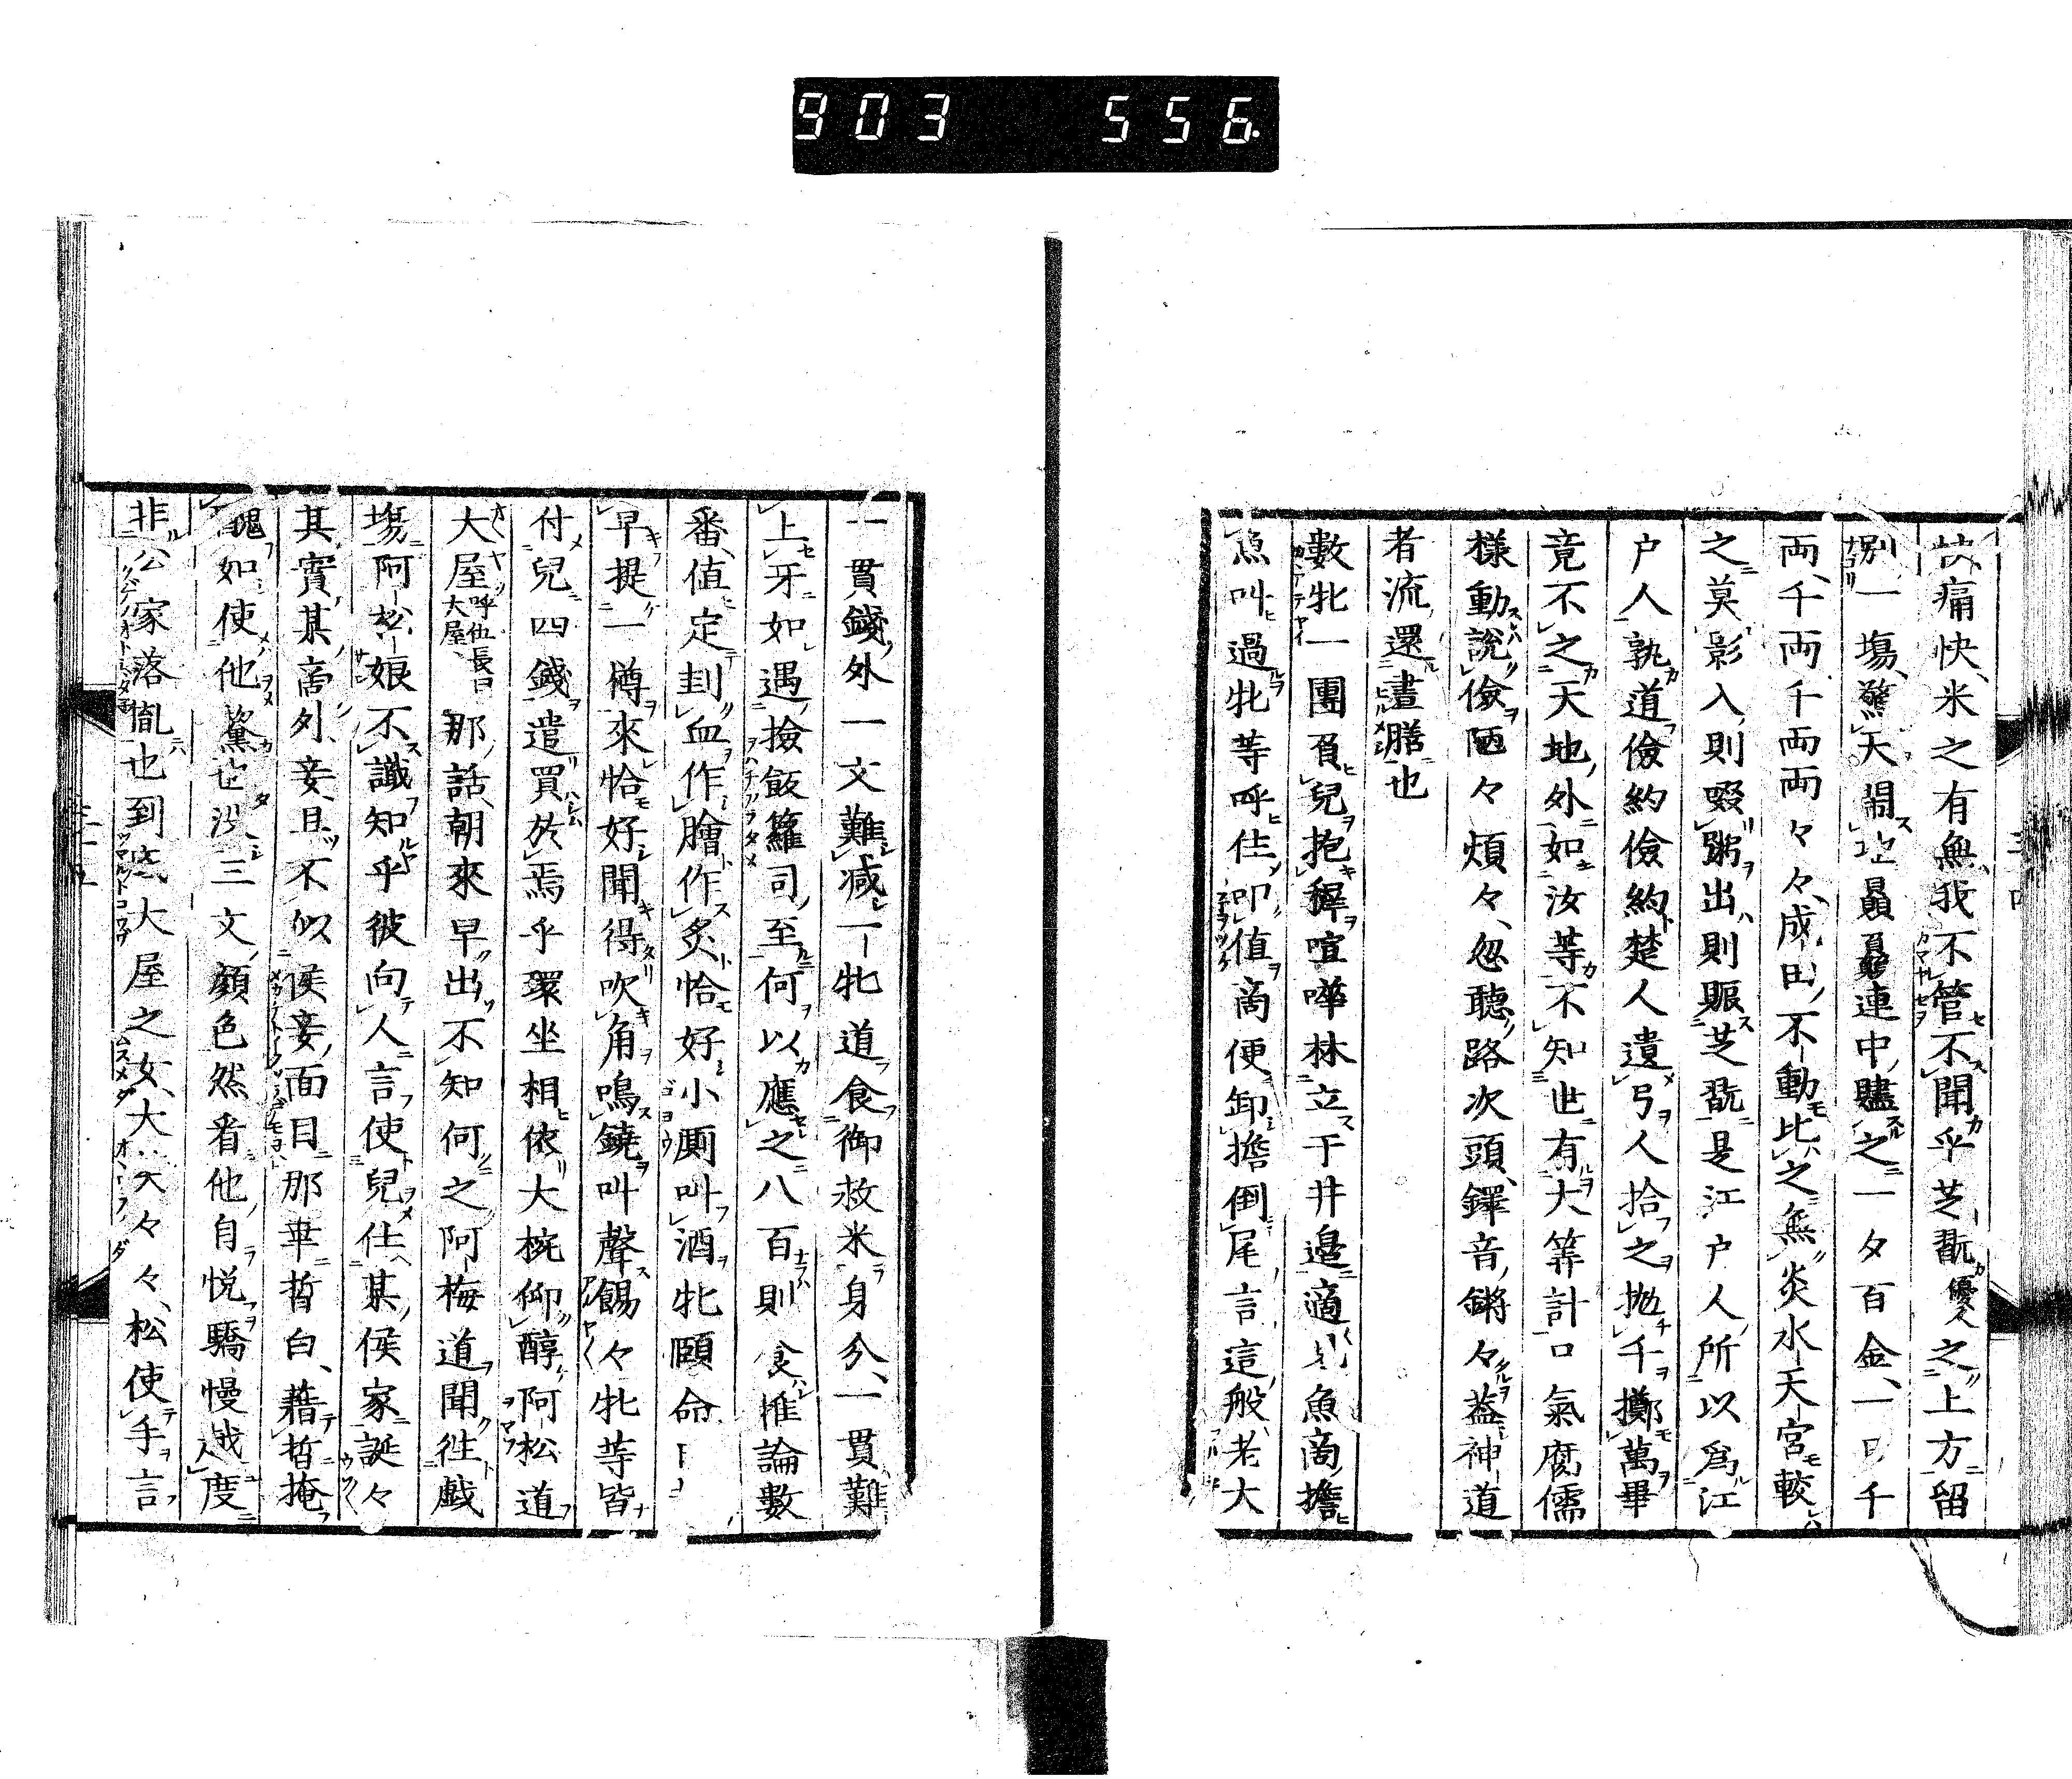 903 556
快、痛快、米之有無、我不管不聞乎、芝翫優人之上方留
別一場、驚天閙地、贔屓連中、贐之一夕百金、一日千
両、千両千両両々々、成田不動比之無炎、水天宮較
之莫影、入則啜粥、出則賑芝翫、是江戸人所以為江
戸人、孰道儉約儉約、楚人遺弓、人拾之、抛千擲萬、畢
竟不之天地外、如汝等不知世有大筭計、口氣腐儒
様、動説儉陋々煩々、忽聴路次頭、鐸音鏘々、蓋神道
者流、還晝膳也
數牝一團、負兒抱穉、喧嘩林立于井邊、適魚商擔
魚叫過、牝等呼住叩値、商便卸擔、倒尾言、這般老大
一貫錢、外一文難減、一牝道、食御救米身分、一貫難
上牙、如遇撿飯籮司至、何以應之、八百則食、推論數
番、値定刲血、作膾作炙恰好、小厠叫酒、牝頤命
早提一樽來、恰好聞得吹角鳴鐃叫聲、餳々、牝等皆
付兒四錢、遣買於焉乎、環坐相依、大椀仰醇、阿松道
大屋呼伍長曰大屋那話、朝來早出、不知何之、阿梅道、聞徃戯
場、阿松娘不識知乎、彼向人言使兒仕某侯家、誕々
其實某商外妾、且不似侯妾面目、那畢晳白、藉晳掩
醜、如使他黧也、没三文、顔色然看他自悦驕慢、戯度
非公家落胤也、到底大屋之女、大笑大々々、松使手言